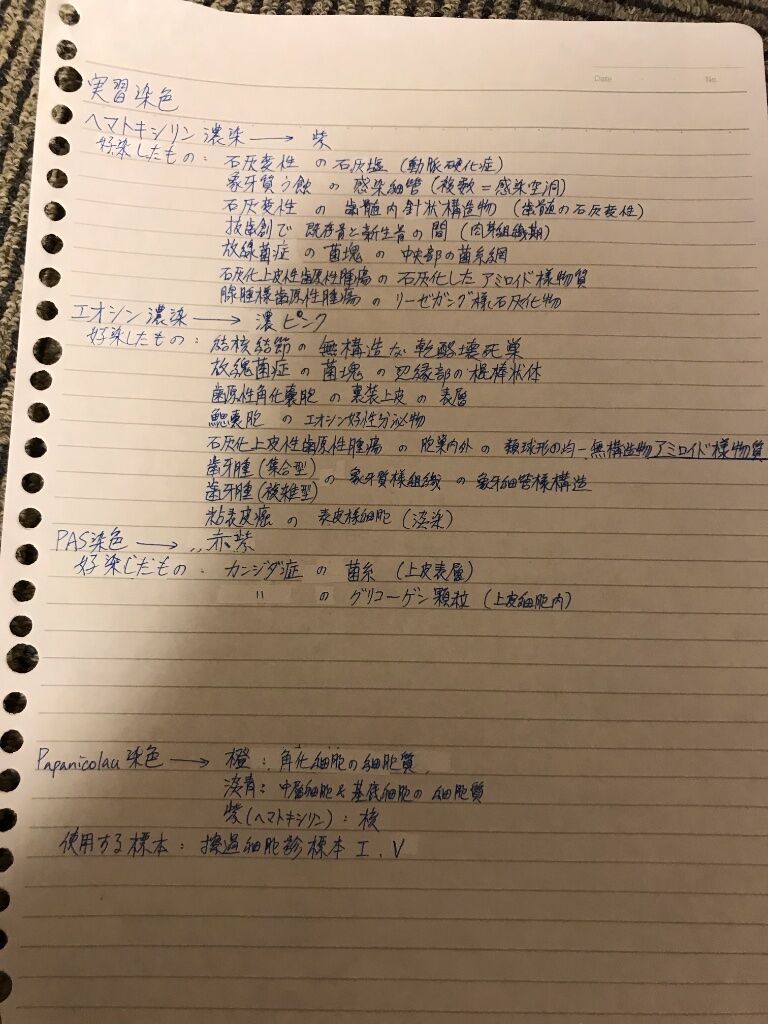 Date No.
実習染色
ヘマトキシリン濃染 → 紫
好染したもの: 石灰変性 の 石灰塩 (動脈硬化症)
象牙質う蝕 の 感染細管 (複数=感染空洞)
石灰変性 の 歯髄内針状構造物 (歯髄の石灰変性)
抜歯創で 既存骨と新生骨の間 (肉芽組織期)
放線菌症 の 菌塊 の 中央部の菌糸網
石灰化上皮性歯原性腫瘍 の 石灰化した アミロイド様物質
腺腫様歯原性腫瘍 の リーゼガング様石灰化物
エオシン濃染 → 濃ピンク
好染したもの: 結核結節の 無構造な 乾酪壊死巣
放線菌症 の 菌塊 の 辺縁部の棍棒状体
歯原性角化嚢胞 の 裏装上皮 の 表層
鰓嚢胞 の エオシン好性分泌物
石灰化上皮性歯原性腫瘍 の 胞巣内外 の 類球形の均一無構造物アミロイド様物質
歯牙腫(集合型)
歯牙腫(複雑型) の 象牙質様組織 の 象牙細管様構造
粘表皮癌 の 表皮様細胞 (淡染)
PAS染色 → 赤紫
好染したもの: カンジダ症 の 菌糸 (上皮表層)
〃 の グリコーゲン顆粒 (上皮細胞内)
Papanicolau染色 → 橙: 角化細胞の細胞質
淡青: 中層細胞&基底細胞の細胞質
紫(ヘマトキシリン): 核
使用する標本: 擦過細胞診標本 I, V